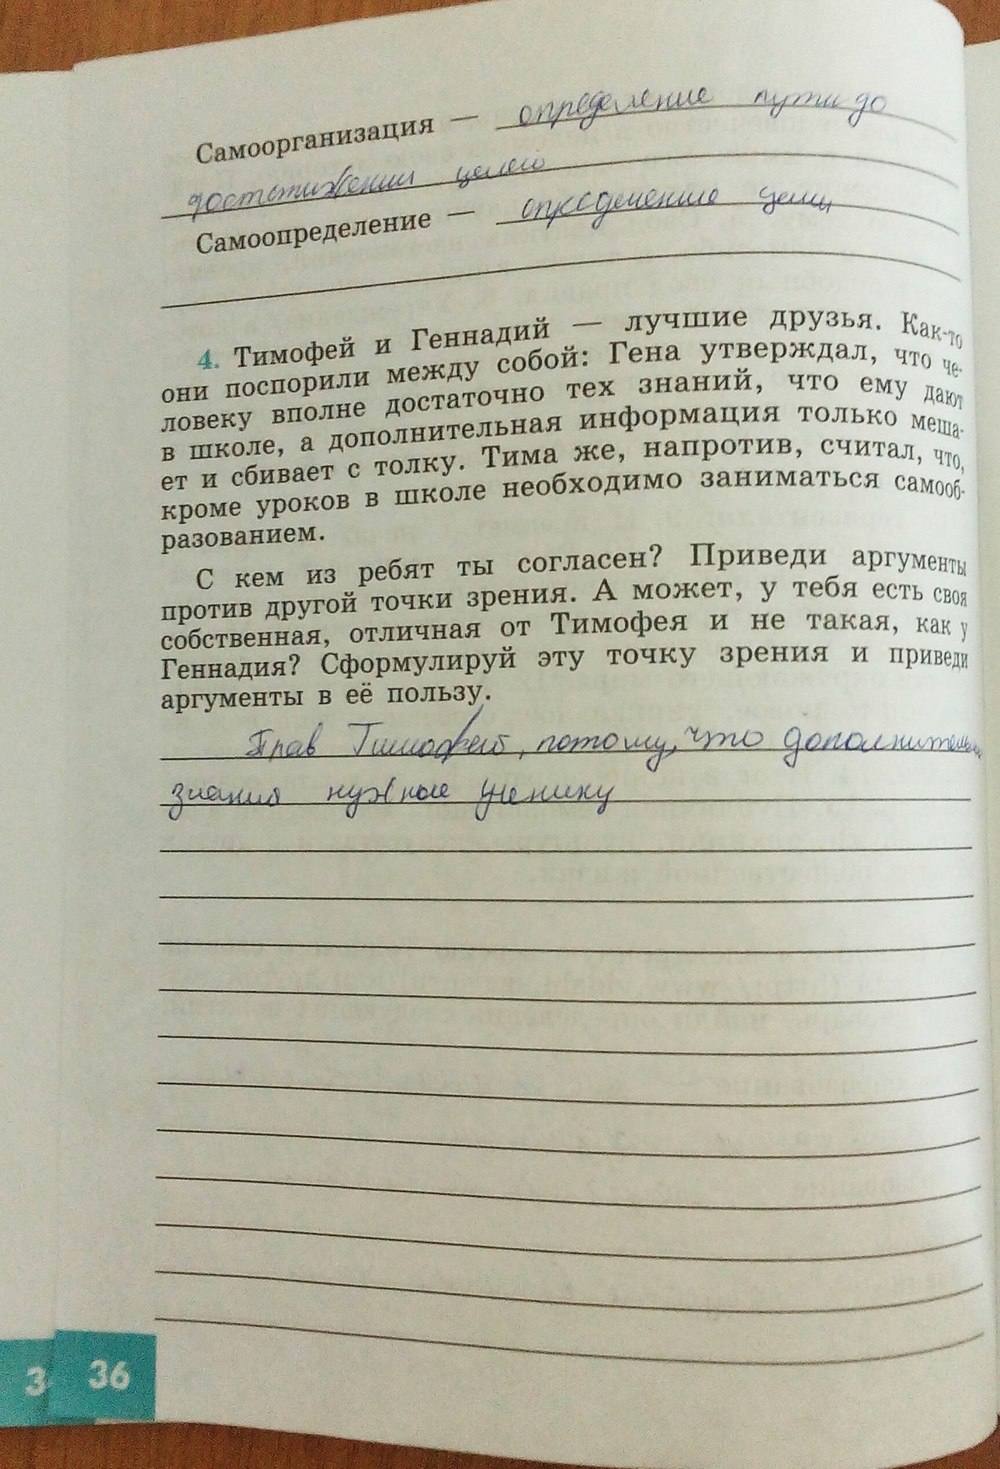 Самоорганизация — определение пути до
достижении целей
Самоопределение — определение цели
4. Тимофей и Геннадий — лучшие друзья. Как-то
они поспорили между собой: Гена утверждал, что че-
ловеку вполне достаточно тех знаний, что ему дают
в школе, а дополнительная информация только меша-
ет и сбивает с толку. Тима же, напротив, считал, что,
кроме уроков в школе необходимо заниматься самооб-
разованием.
С кем из ребят ты согласен? Приведи аргументы
против другой точки зрения. А может, у тебя есть своя
собственная, отличная от Тимофея и не такая, как у
Геннадия? Сформулируй эту точку зрения и приведи
аргументы в её пользу.
Прав Тимофей, потому, что дополнительные
знания нужные ученику
36